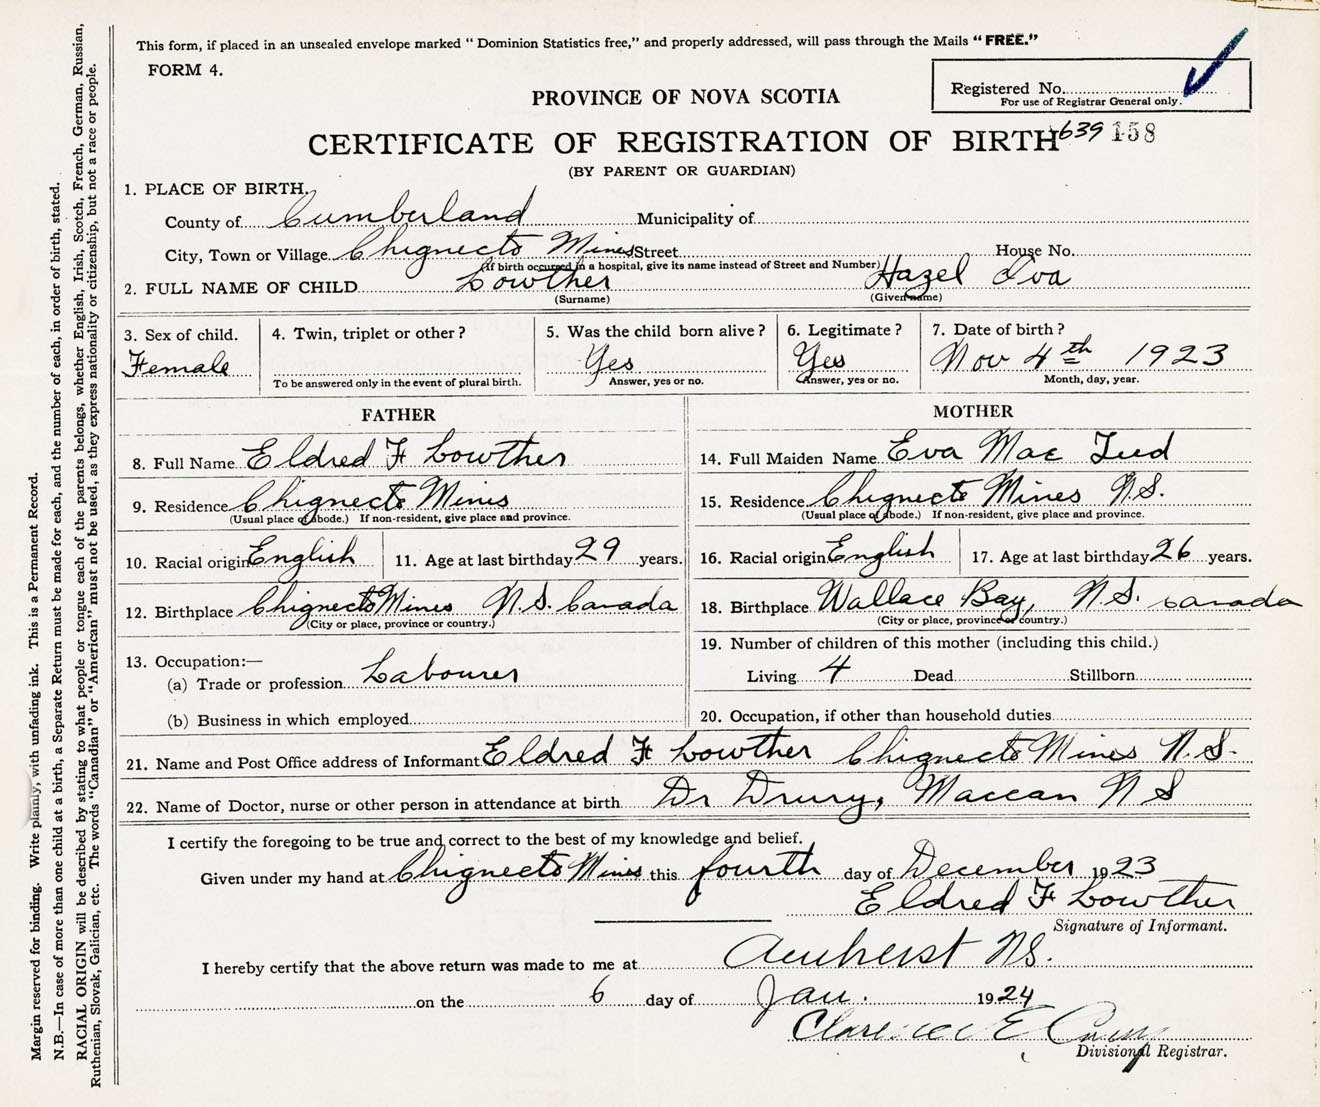 This form, if placed in an unsealed envelope marked "Dominion Statistics free," and properly addressed, will pass through the Mails "FREE."
FORM 4.
Registered No.
For use of Registrar General only.
PROVINCE OF NOVA SCOTIA
CERTIFICATE OF REGISTRATION OF BIRTH 1639 158
(BY PARENT OR GUARDIAN)
1. PLACE OF BIRTH.
County of Cumberland Municipality of
City, Town or Village Chignecto Mines Street House No.
(If birth occurred in a hospital, give its name instead of Street and Number)
2. FULL NAME OF CHILD Lowther Hazel Iva
(Surname) (Given name)
3. Sex of child. 4. Twin, triplet or other? 5. Was the child born alive? 6. Legitimate? 7. Date of birth?
Female Yes Yes Nov 4th 1923
To be answered only in the event of plural birth. Answer, yes or no. Answer, yes or no. Month, day, year.
FATHER MOTHER
8. Full Name Eldred F Lowther 14. Full Maiden Name Eva Mac Teed
9. Residence Chignecto Mines 15. Residence Chignecto Mines N.S.
(Usual place of abode.) If non-resident, give place and province. (Usual place of abode.) If non-resident, give place and province.
10. Racial origin English 11. Age at last birthday 29 years. 16. Racial origin English 17. Age at last birthday 26 years.
12. Birthplace Chignecto Mines N.S. Canada 18. Birthplace Wallace Bay, N.S. Canada
(City or place, province or country.) (City or place, province or country.)
13. Occupation:— 19. Number of children of this mother (including this child.)
(a) Trade or profession Labourer Living 4 Dead Stillborn
(b) Business in which employed 20. Occupation, if other than household duties
21. Name and Post Office address of Informant Eldred F Lowther Chignecto Mines N.S.
22. Name of Doctor, nurse or other person in attendance at birth Dr Drury, Maccan N S
I certify the foregoing to be true and correct to the best of my knowledge and belief.
Given under my hand at Chignecto Mines this fourth day of December 1923
Eldred F Lowther
Signature of Informant.
I hereby certify that the above return was made to me at Amherst N.S.
on the 6 day of Jan. 1924
Clarence E
Divisional Registrar.
Margin reserved for binding. Write plainly, with unfading ink. This is a Permanent Record.
N.B.—In case of more than one child at a birth, a Separate Return must be made for each, and the number of each, in order of birth, stated.
RACIAL ORIGIN will be described by stating to what people or tongue each of the parents belongs, whether English, Irish, Scotch, French, German, Russian,
Ruthenian, Slovak, Galician, etc. The words "Canadian" or "American" must not be used, as they express nationality or citizenship, but not a race or people.